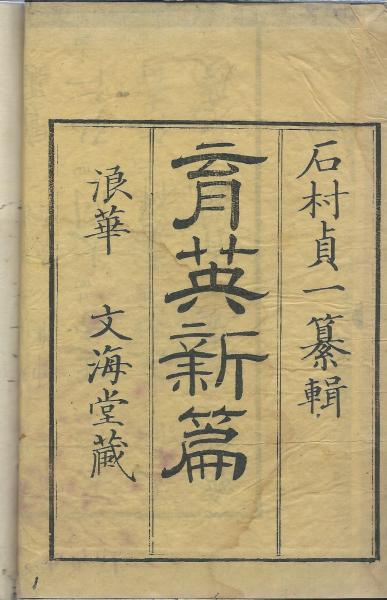 石村貞一纂輯
育英新篇
浪華 文海堂藏
1